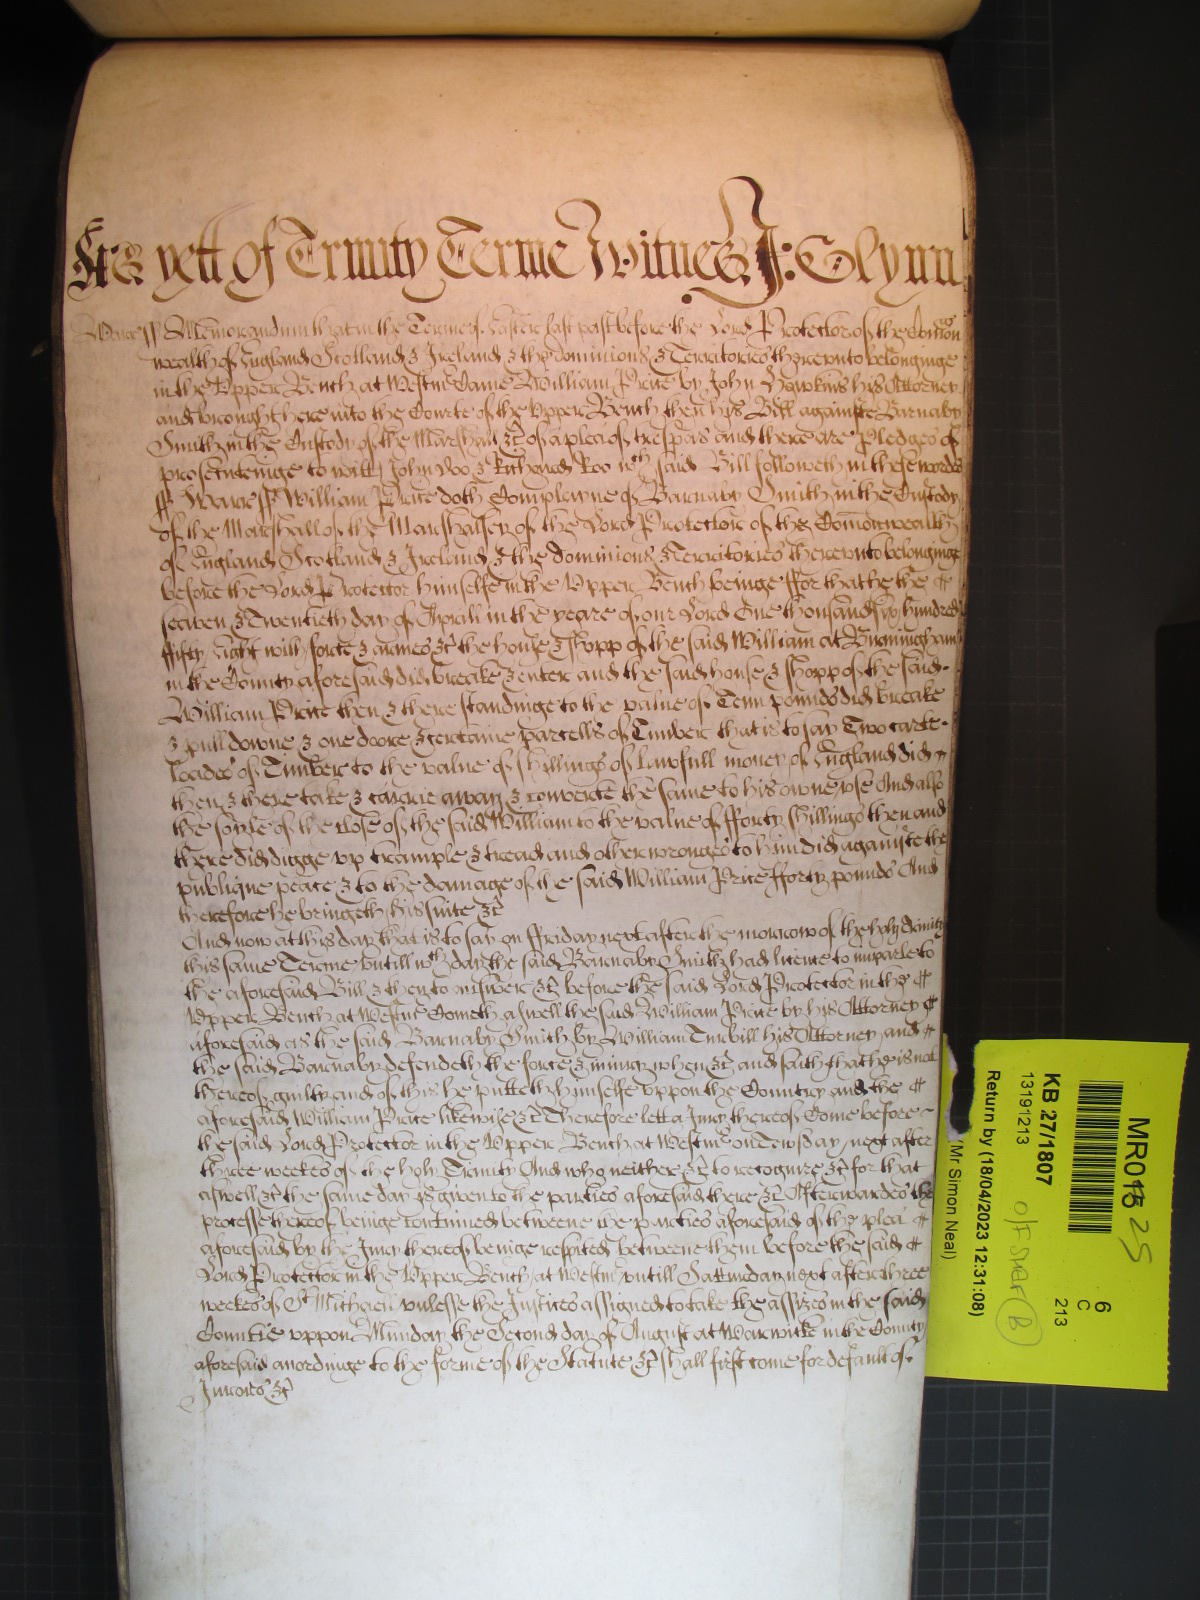 As yett of Trinity Terme Witnes J: Glynn
Warr ss Memorandum that in the Terme of Easter last past before the Lord Protector of the Comon
wealth of England Scotland & Ireland & the dominions & Territories thereunto belonginge
in the Upper Bench at Westmr Came William Price by John Hawkins his Attorney
and brought here into the Courte of the Upper Bench then his Bill againste Barnaby
Smith in the Custody of the Marshall &c of a plea of trespas and there are pledges of
prosecuteinge to witt John Doo & Richard Roo wch said Bill followeth in these wordes
ss Warr ss William Price doth Complayne of Barnaby Smith in the Custody
of the Marshall of the Marshalsey of the Lord Protector of the Comonwealth
of England Scotland & Ireland & the dominions & Territories thereunto belonginge
before the Lord Protector himselfe in the Upper Bench beinge ffor that he the
seaven & Twentieth day of Aprill in the yeare of our Lord One thousand six hundred
ffifty Eight with force & armes &c the house & shopp of the said William at Birmingham
in the County aforesaid did breake & enter and the said house & shopp of the said
William Price then & there standinge to the value of Tenn pounds did breake
& pull downe & one doore & certaine parcells of Timber that is to say Two carte
loades of Timber to the value of shillings of lawfull money of England did
then & there take & carrie away & converte the same to his owne use And also
the soyle of the close of the said William to the value of fforty shillings then and
there did digge up trample & tread and other wronges to him did againste the
publique peace & to the damage of the said William Price fforty pounds And
therefore he bringeth his suite &c
And now at this day that is to say on ffriday next after the morrow of the holy Trinity
this same Terme untill wch day the said Barnaby Smith had licence to imparle to
the aforesaid Bill & then to answer &c before the said Lord Protector in the
Upper Bench at Westmr Cometh aswell the said William Price by his Attorney
aforesaid as the said Barnaby Smith by William Turbill his Attorney and
the said Barnaby defendeth the force & iniury when &c and saith that he is not
thereof guilty and of this he putteth himselfe uppon the Country and the
aforesaid William Price likewise &c Therefore lett a Jury thereof Come before
the said Lord Protector in the Upper Bench at Westmr on Tewsday next after
three weekes of the holy Trinity And who neither &c to recognize &c for that
aswell &c the same day is given to the parties aforesaid there &c Afterwardes the
processe thereof beinge continued betweene the parties aforesaid of the plea
aforesaid by the Jury thereof beinge respited betweene them before the said
Lord Protector in the Upper Bench at Westmr untill Saturday next after three
weekes of St Michaell unlesse the Justices assigned to take the assizes in the said
Countie uppon Munday the Second day of August at Warwicke in the County
aforesaid accordinge to the forme of the Statute &c shall first come for default of
Jurores &c
MR015 25
6
C
213
KB 27/1807
13191213
o/f Shelf (B)
Return by (18/04/2023 12:31:08)
(Mr Simon Neal)